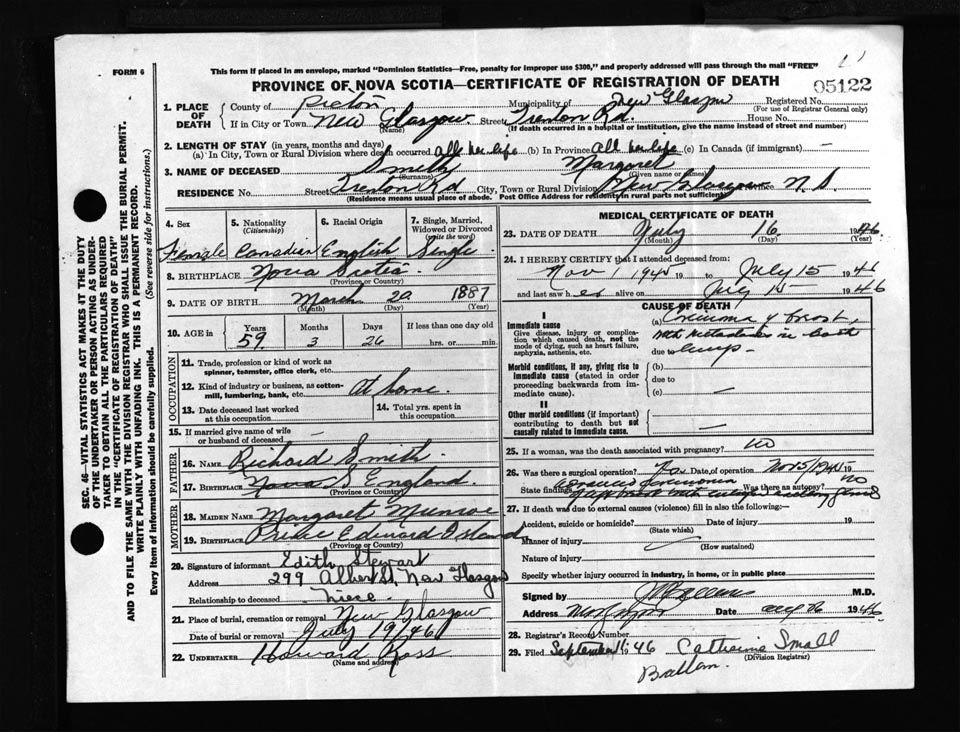 FORM 6
This form if placed in an envelope, marked "Dominion Statistics—Free, penalty for improper use $300," and properly addressed will pass through the mail "FREE"
PROVINCE OF NOVA SCOTIA—CERTIFICATE OF REGISTRATION OF DEATH
05122
1. PLACE OF DEATH County of Pictou Municipality of New Glasgow Registered No.
(For use of Registrar General only)
If in City or Town New Glasgow Street Trenton Rd. House No.
(Name) (If death occurred in a hospital or institution, give the name instead of street and number)
2. LENGTH OF STAY (in years, months and days)
(a) In City, Town or Rural Division where death occurred all her life (b) In Province all her life (c) In Canada (if immigrant) —
3. NAME OF DECEASED Smith Margaret
(Surname) (Given name or names)
RESIDENCE No. Street Trenton Rd City, Town or Rural Division New Glasgow Province N. S.
(Residence means usual place of abode. Post Office Address for residents in rural parts not sufficient)
4. Sex
Female
5. Nationality
(Citizenship)
Canadian
6. Racial Origin
English
7. Single, Married, Widowed or Divorced
(write the word)
Single
8. BIRTHPLACE Nova Scotia
(Province or Country)
9. DATE OF BIRTH March 20 1887
(Month) (Day) (Year)
10. AGE in Years Months Days If less than one day old
59 3 26 hrs. or min.
OCCUPATION
11. Trade, profession or kind of work as spinner, teamster, office clerk, etc.
12. Kind of industry or business, as cotton-mill, lumbering, bank, etc. At home.
13. Date deceased last worked at this occupation
14. Total yrs. spent in this occupation
15. If married give name of wife or husband of deceased —
FATHER
16. Name Richard Smith
17. Birthplace England
(Province or Country)
MOTHER
18. Maiden Name Margaret Munroe
19. Birthplace Prince Edward Island
(Province or Country)
20. Signature of informant Edith Stewart
Address 299 Albert St, New Glasgow
Relationship to deceased Niece
21. Place of burial, cremation or removal New Glasgow
Date of burial or removal July 19/46
22. UNDERTAKER Howard Ross
(Name and address)
MEDICAL CERTIFICATE OF DEATH
23. DATE OF DEATH July 16 1946
(Month) (Day) (Year)
24. I HEREBY CERTIFY that I attended deceased from:
Nov 1 1945 19 to July 15 1946
and last saw her alive on July 15 1946
CAUSE OF DEATH
I
Immediate cause
Give disease, injury or complication which caused death, not the mode of dying, such as heart failure, asphyxia, asthenia, etc.
(a)
with metastases in both
due to lungs —
Morbid conditions, if any, giving rise to immediate cause (stated in order proceeding backwards from immediate cause).
(b)
due to
(c) —
II
Other morbid conditions (if important) contributing to death but not causally related to immediate cause.
—
25. If a woman, was the death associated with pregnancy? No
26. Was there a surgical operation? Yes Date of operation Nov 5/1945 19
State findings Was there an autopsy? No
27. If death was due to external causes (violence) fill in also the following:—
Accident, suicide or homicide? Date of injury 19
(State which)
Manner of injury
(How sustained)
Nature of injury
Specify whether injury occurred in industry, in home, or in public place
Signed by M.D.
Address Date Aug 26 1946
28. Registrar's Record Number
29. Filed September 1946 Catherine Small
(Division Registrar)
SEC. 46—VITAL STATISTICS ACT MAKES IT THE DUTY
OF THE UNDERTAKER OR PERSON ACTING AS UNDER-
TAKER TO OBTAIN ALL THE PARTICULARS REQUIRED
IN THE "CERTIFICATE OF REGISTRATION OF DEATH"
AND TO FILE THE SAME WITH THE DIVISION REGISTRAR WHO SHALL ISSUE THE BURIAL PERMIT.
WRITE PLAINLY WITH UNFADING INK. THIS IS A PERMANENT RECORD.
Every item of information should be carefully supplied. (See reverse side for instructions.)